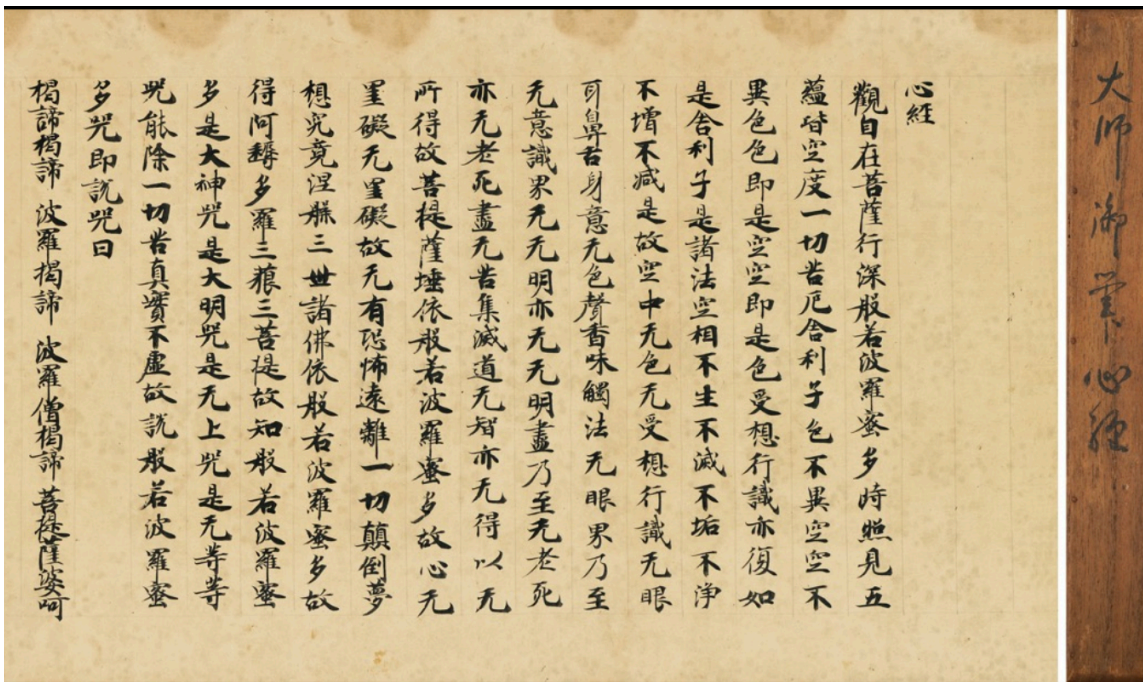 大師御筆心經
心経
觀自在菩薩行深般若波羅蜜多時照見五
蘊皆空度一切苦厄舍利子色不異空空不
異色色即是空空即是色受想行識亦復如
是舍利子是諸法空相不生不滅不垢不浄
不增不減是故空中无色无受想行識无眼
耳鼻舌身意无色聲香味觸法无眼界乃至
无意識界无无明亦无无明盡乃至无老死
亦无老死盡无苦集滅道无智亦无得以无
所得故菩提薩埵依般若波羅蜜多故心无
罣礙无罣礙故无有恐怖遠離一切顛倒夢
想究竟涅槃三世諸佛依般若波羅蜜多故
得阿耨多羅三藐三菩提故知般若波羅蜜
多是大神咒是大明咒是无上咒是无等等
咒能除一切苦真實不虛故説般若波羅蜜
多咒即説咒曰
揭諦揭諦 波羅揭諦 波羅僧揭諦 菩提薩婆呵